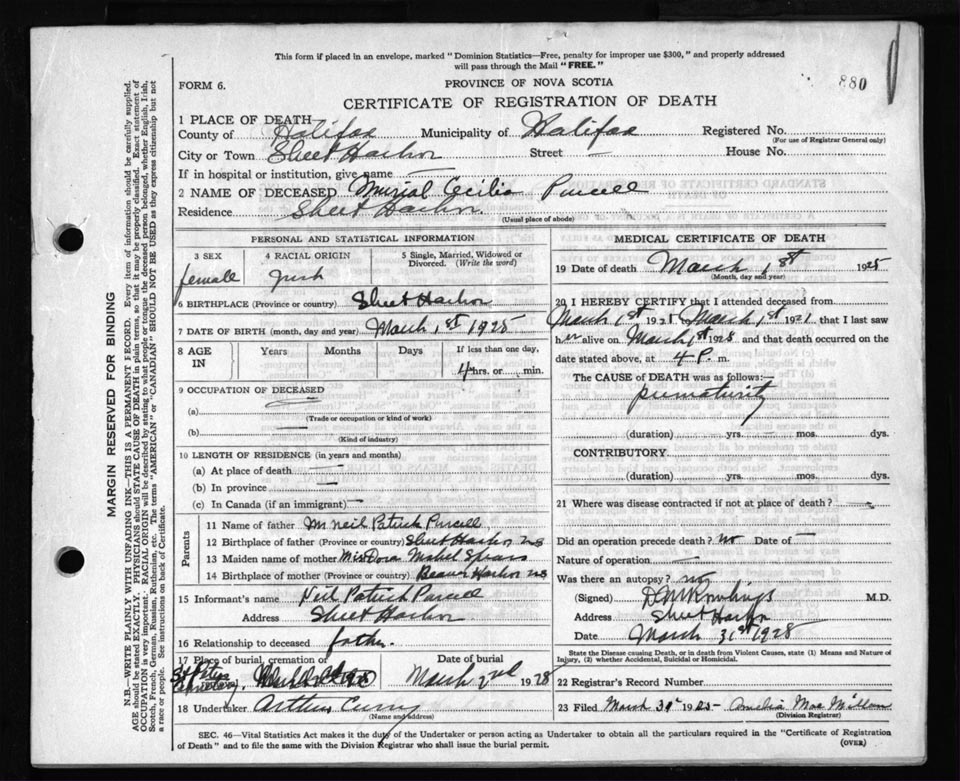 This form if placed in an envelope, marked "Dominion Statistics—Free, penalty for improper use $300," and properly addressed
will pass through the Mail "FREE."
880
FORM 6.
PROVINCE OF NOVA SCOTIA
CERTIFICATE OF REGISTRATION OF DEATH
1 PLACE OF DEATH
County of Halifax Municipality of Halifax Registered No.
(For use of Registrar General only)
City or Town Sheet Harbor Street — House No.
If in hospital or institution, give name —
2 NAME OF DECEASED Murial Cecilia Purcell
Residence Sheet Harbor.
(Usual place of abode)
PERSONAL AND STATISTICAL INFORMATION
3 SEX
female
4 RACIAL ORIGIN
Irish
5 Single, Married, Widowed or
Divorced. (Write the word)
6 BIRTHPLACE (Province or country) Sheet Harbor
7 DATE OF BIRTH (month, day and year) March 1st 1928
8 AGE IN
Years Months Days If less than one day,
4 hrs. or min.
9 OCCUPATION OF DECEASED
(a) —
(Trade or occupation or kind of work)
(b) —
(Kind of industry)
10 LENGTH OF RESIDENCE (in years and months)
(a) At place of death —
(b) In province —
(c) In Canada (if an immigrant) —
Parents
11 Name of father Mr Neil Patrick Purcell
12 Birthplace of father (Province or country) Sheet Harbor NS
13 Maiden name of mother Miss Dora Mabel
14 Birthplace of mother (Province or country) Beaver Harbor NS
15 Informant's name Neil Patrick Purcell
Address Sheet Harbor
16 Relationship to deceased father.
17 Place of burial, cremation or
St Peters Cemetery,
Date of burial
March 2nd 1928
18 Undertaker Arthur
(Name and address)
MEDICAL CERTIFICATE OF DEATH
19 Date of death March 1st 1928
(Month, day and year)
20 I HEREBY CERTIFY that I attended deceased from
March 1st 192 to March 1st 192 that I last saw
her alive on March 1st 1928 and that death occurred on the
date stated above, at 4 P. m.
The CAUSE of DEATH was as follows:—
prematurity
(duration) yrs. mos. dys.
CONTRIBUTORY
(duration) yrs. mos. dys.
21 Where was disease contracted if not at place of death?
Did an operation precede death? No Date of —
Nature of operation —
Was there an autopsy? no
(Signed) M.D.
Address Sheet Harbor
Date March 31st 1928
State the Disease causing Death, or in death from Violent Causes, state (1) Means and Nature of
Injury, (2) whether Accidental, Suicidal or Homicidal.
22 Registrar's Record Number
23 Filed March 31st 1928 Amelia MacMillan
(Division Registrar)
SEC. 46—Vital Statistics Act makes it the duty of the Undertaker or person acting as Undertaker to obtain all the particulars required in the "Certificate of Registration
of Death" and to file the same with the Division Registrar who shall issue the burial permit.
(OVER)
MARGIN RESERVED FOR BINDING
N.B.—WRITE PLAINLY WITH UNFADING INK—THIS IS A PERMANENT RECORD. Every item of information should be carefully supplied.
AGE should be stated EXACTLY. PHYSICIANS should STATE CAUSE OF DEATH in plain terms, so that it may be properly classified. Exact statement of
OCCUPATION is very important. RACIAL ORIGIN will be described by stating to what people or tongue the deceased person belonged, whether English, Irish,
Scotch, French, German, Russian, Ruthenian, etc. The terms "AMERICAN" or "CANADIAN" SHOULD NOT BE USED as they express citizenship but not
a race or people. See instructions on back of Certificate.